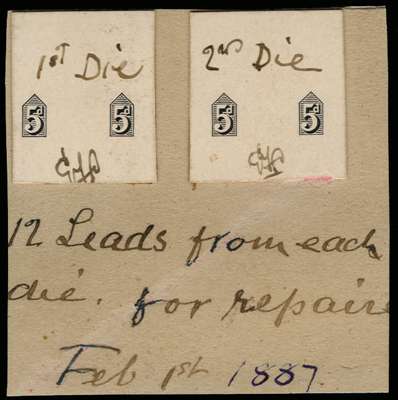 1st Die
2nd Die
5d 5d
5d 5d
12 Leads from each
die. for repaire
Feb 1st 1887.